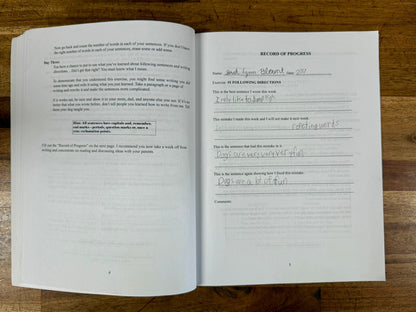 Now go back and count the number of words in each of your sentences. If you don't have
the right number of words in each of your sentences, erase some or add some.
Day Three:
You have a chance to put to use what you've learned about following sentences and writing
directions... don't get that right? You must know what I mean.
To demonstrate that you understand this exercise, you might find some writing you did
some time ago and redo it using what you just learned. Take a paragraph or a page of
writing and rewrite it and make the sentences more complicated.
If it works out, be nice and show it to your mom, dad, and anyone else you see. If it's no
better than what you wrote before, don't tell people you learned how to write from me.
from your dog might you.
Hint: All sentences have capitals and, remember,
end marks - periods, question marks or, once a
year exclamation points.
Fill out the "Record of Progress" on the next page. I recommend you now take a week off from
writing and concentrate on reading and discussing ideas with your parents.
4
RECORD OF PROGRESS
Name: Date:
Exercise #1 FOLLOWING DIRECTIONS
This is the best sentence I wrote this week.
I really like to jump high.
This mistake I made this week and I will not make it next week.
repeating words
This is the sentence that had this mistake in it.
Dogs are very very very fun.
This is the sentence again showing how I fixed this mistake.
Dogs are a lot of fun.
Comments:
5